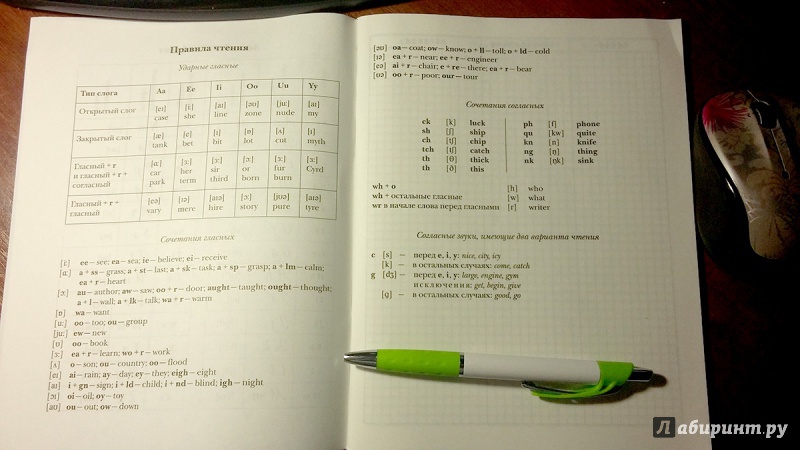 Правила чтения
Ударные гласные
Тип слога Aa Ee Ii Oo Uu Yy
Открытый слог [eɪ] [i:] [aɪ] [əʊ] [ju:] [aɪ]
case she line zone nude my
Закрытый слог [æ] [e] [ɪ] [ɒ] [ʌ] [ɪ]
tank bet bit lot cut myth
Гласный + r [ɑ:] [ɜ:] [ɜ:] [ɔ:] [ɜ:] [ɜ:]
и гласный + r + car her sir or fur Cyrd
согласный park term third born burn
Гласный + r + [eə] [ɪə] [aɪə] [ɔ:] [jʊə] [aɪə]
гласный vary mere hire story pure tyre
Сочетания гласных
[i:] ee – see; ea – sea; ie – believe; ei – receive
[ɑ:] a + ss – grass; a + st – last; a + sk – task; a + sp – grasp; a + lm – calm;
ea + r – heart
[ɔ:] au – author; aw – saw; oo + r – door; aught – taught; ought – thought;
a + l – wall; a + lk – talk; wa + r – warm
[ɒ] wa – want
[u:] oo – too; ou – group
[ju:] ew – new
[ʊ] oo – book
[ɜ:] ea + r – learn; wo + r – work
[ʌ] o – son; ou – country; oo – flood
[eɪ] ai – rain; ay – day; ey – they; eigh – eight
[aɪ] i + gn – sign; i + ld – child; i + nd – blind; igh – night
[ɔɪ] oi – oil; oy – toy
[aʊ] ou – out; ow – down
[əʊ] oa – coat; ow – know; o + ll – toll; o + ld – cold
[ɪə] ea + r – near; ee + r – engineer
[eə] ai + r – chair; e + re – there; ea + r – bear
[ʊə] oo + r – poor; our – tour
Сочетания согласных
ck [k] luck ph [f] phone
sh [ʃ] ship qu [kw] quite
ch [tʃ] chip kn [n] knife
tch [tʃ] catch ng [ŋ] thing
th [θ] thick nk [ŋk] sink
th [ð] this
wh + o [h] who
wh + остальные гласные [w] what
wr в начале слова перед гласными [r] writer
Согласные звуки, имеющие два варианта чтения
c [s] — перед e, i, y: nice, city, icy
[k] — в остальных случаях: come, catch
g [dʒ] — перед e, i, y: large, engine, gym
исключения: get, begin, give
[g] — в остальных случаях: good, go
Лабиринт.ру